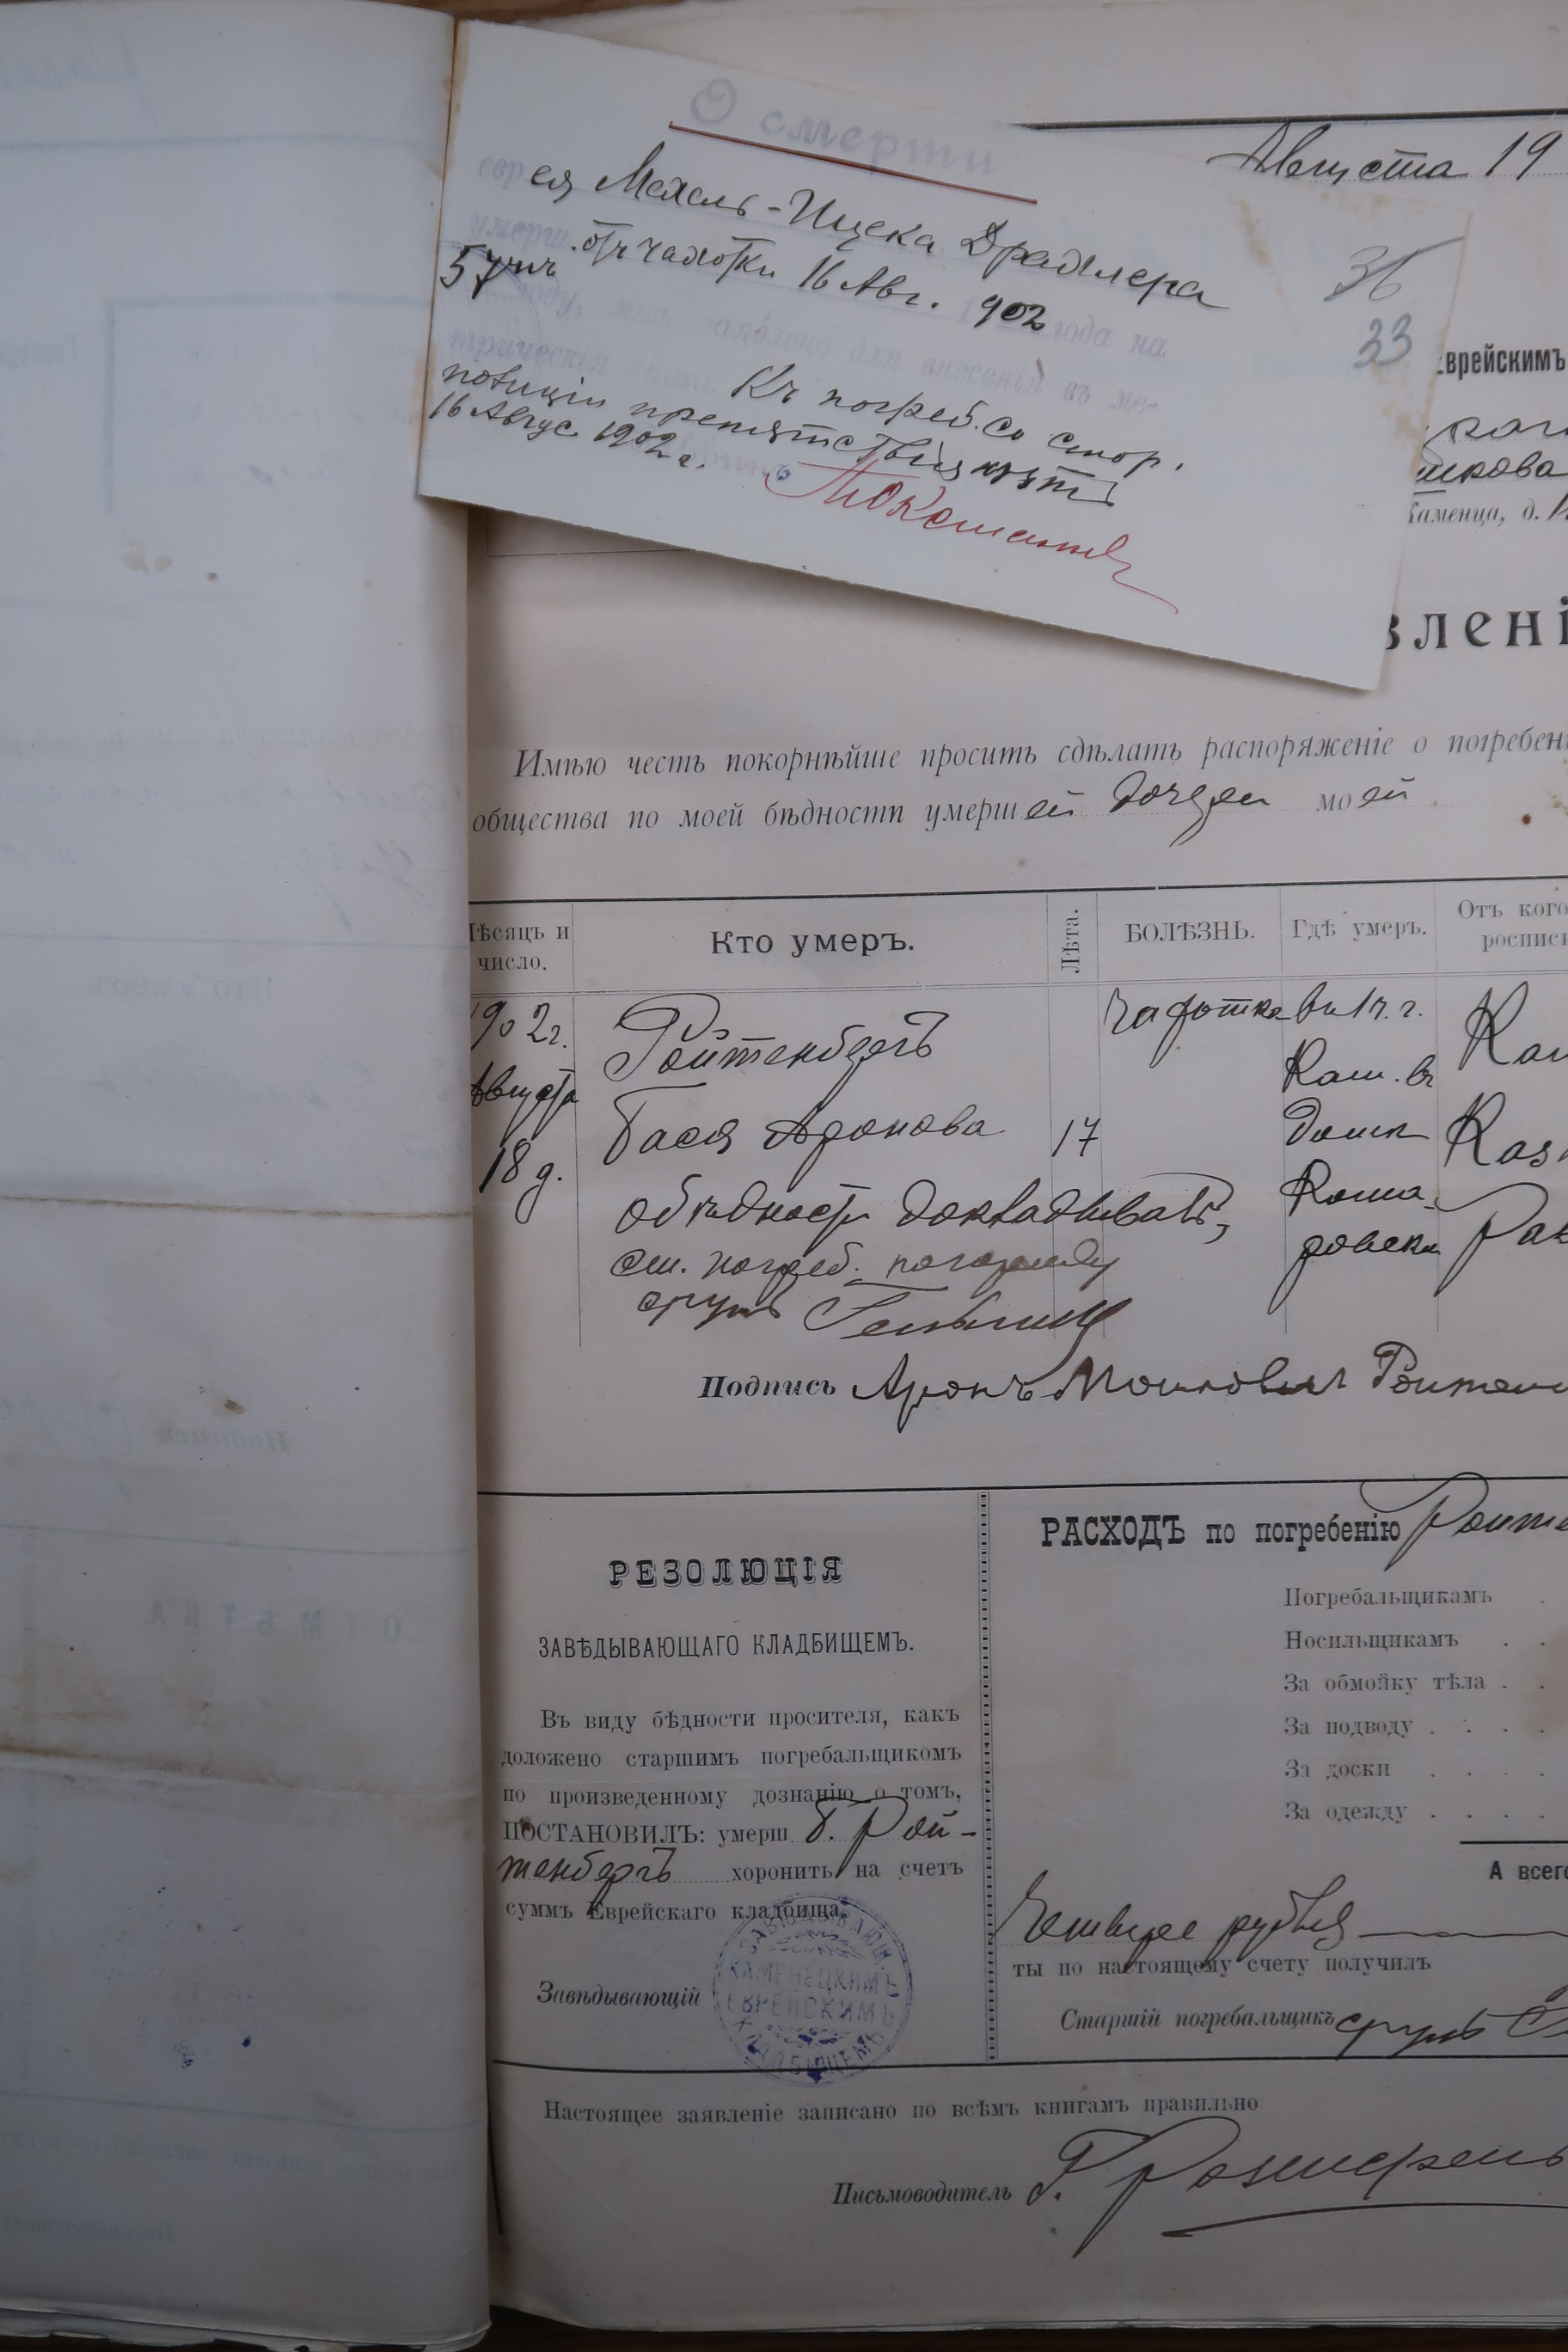 О смерти
еврея Мехель-Ицека Дратлера
умерш. отъ чахотки 16 Авг. 1902 года на
57 году, мнѣ заявлено для внесенія въ ме-
трическія книги
Къ погреб. со стор.
полиціи препятствія нѣтъ
16 Авгус. 1902 г.
36
33
Августа 19
Еврейскимъ
Каменца, д.
влені
Имѣю честь покорнѣйше просить сдѣлать распоряженіе о погребен
общества по моей бѣдности умершей дочери моей
Мѣсяцъ и число.
Кто умеръ.
Лѣта.
БОЛѢЗНЬ.
Гдѣ умеръ.
Отъ кого
росписк
1902 г.
Августа
18 д.
Ройтенбергъ
Бася Аронова
17
Чахотка
въ г.
Кам. въ
домѣ
Кома-
ровски
О бѣдности докладываетъ,
ст. погреб.
Сруль
Подпись Аронъ Мошковичъ Ройтен
РЕЗОЛЮЦІЯ
ЗАВѢДЫВАЮЩАГО КЛАДБИЩЕМЪ.
Въ виду бѣдности просителя, какъ
доложено старшимъ погребальщикомъ
по произведенному дознанію о томъ,
ПОСТАНОВИЛЪ: умерш Б. Рой-
тенбергъ хоронить на счетъ
суммъ Еврейскаго кладбища.
Завѣдывающій
ЗАВѢДЫВАЮЩ.
КАМЕНЕЦКИМЪ
ЕВРЕЙСКИМЪ
КЛАДБИЩЕМЪ
РАСХОДЪ по погребенію Ройте
Погребальщикамъ .
Носильщикамъ . .
За обмойку тѣла . .
За подводу . . . .
За доски . . . .
За одежду . . . .
А всего
Четыре рубля
ты по настоящему счету получилъ
Старшій погребальщикъ Сруль
Настоящее заявленіе записано по всѣмъ книгамъ правильно
Письмоводитель